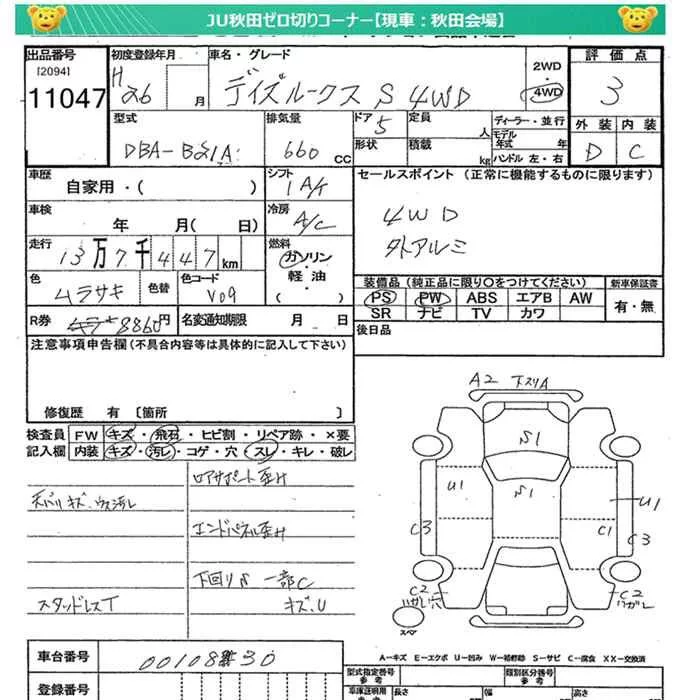 JU秋田ゼロ切りコーナー【現車：秋田会場】
出品番号
[2094]
11047
初度登録年月
H26 月
車名・グレード
デイズルークス S 4WD
2WD
・
4WD
評価点
3
外装 内装
D C
型式
DBA-B21A
排気量
660 CC
ドア 5
形状
定員 人
積載 kg
ディーラー・並行
モデル
年式 年
ハンドル 左・右
車歴
自家用・( )
シフト
IA/t
セールスポイント (正常に機能するものに限ります)
4WD
外アルミ
車検
年 月( 日)
冷房
A/C
走行
13万7千447km
燃料
ガソリン
軽油
( ・ )
色
ムラサキ
色替
色コード
V09
装備品 (純正品に限り○をつけてください)
PS PW ABS エアB AW
SR ナビ TV カワ
新車保証書
有・無
R券
8860円
名変通知期限 月 日
後日品
注意事項申告欄(不具合内容等は具体的に記入して下さい)
修復歴 有 〔箇所 〕
検査員
記入欄
FW キズ・飛石・ヒビ割・リペア跡・×要
内装 キズ・汚レ・コゲ・穴・スレ・キレ・破レ
ロアサポート歪サ
天バリ キズ、ウス汚レ
エンドパネル歪サ
下回りS 一部C
スタッドレスT
キズ、U
A2 下スリA
S1
U1
S1
U1
C3
C1
C3
C2
ハガレ
C2
ハガレ
スペア
A-キズ E-エクボ U-凹み W-補修跡 S-サビ C-腐食 XX-交換済
車台番号
0010830
登録番号
型式指定番号
参考
類別区分番号
参考
車庫証明用
長さ
幅
高さ